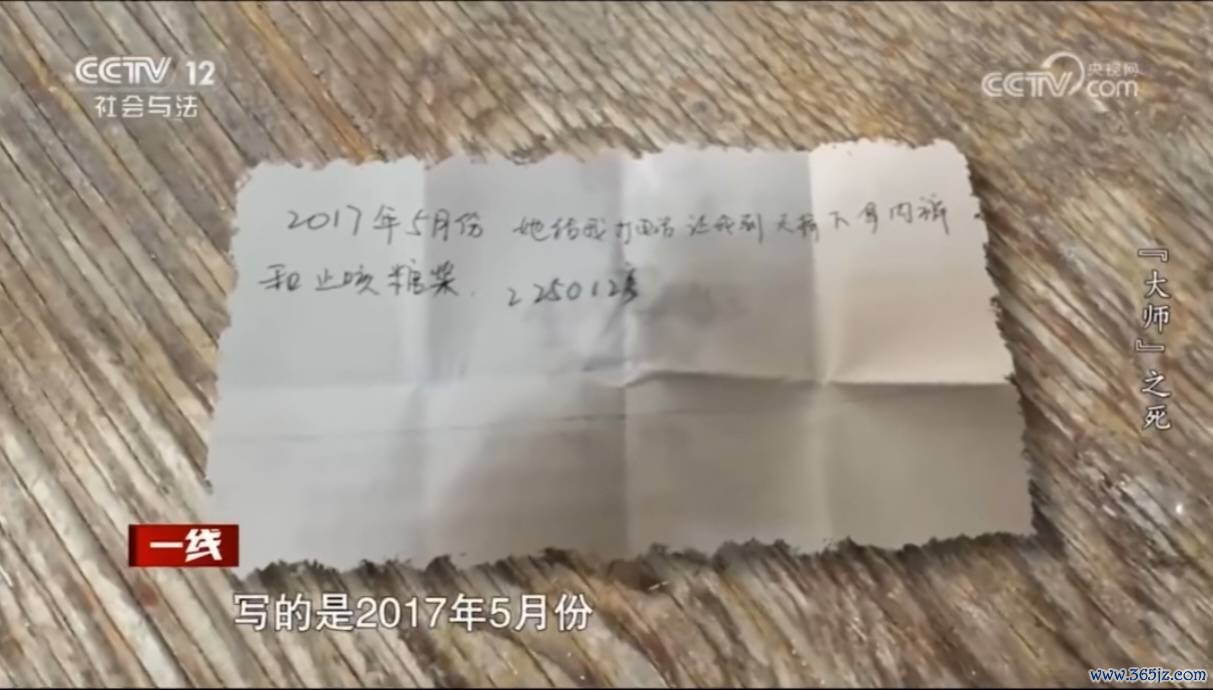 CCTV 12
社会与法
央视网
CCTV.com
2017年5月份 她给我打电话 让我到天桥下拿内裤
和止咳糖浆. 225012
『大师』之死
一线
写的是2017年5月份
www.365jz.com